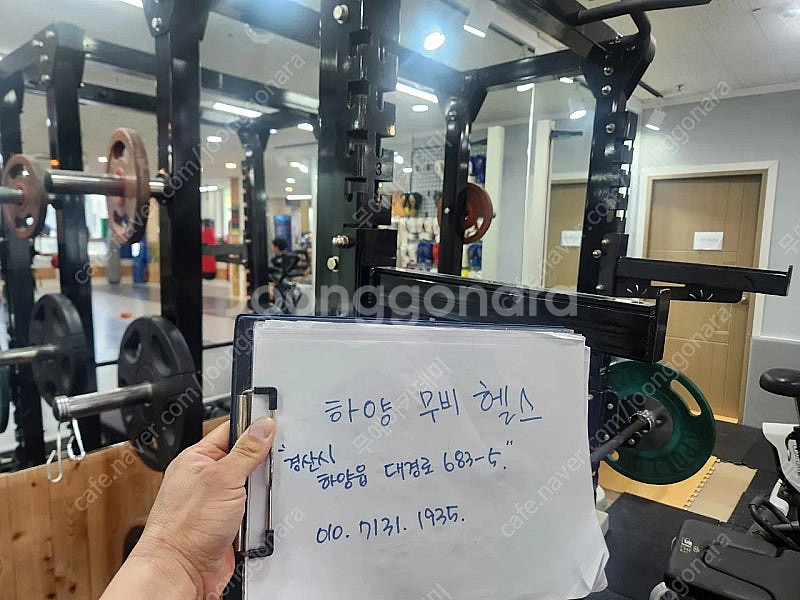 하양 무비 헬스
"경산시
하양읍 대경로 683-5."
010. 7131. 1935.
joonggonara
cafe.naver.com/joonggonara